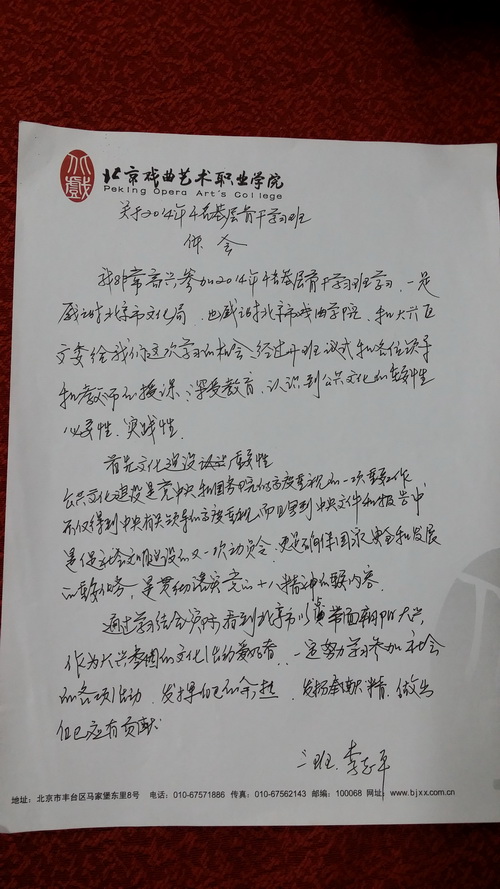 北戲
北京戏曲艺术职业学院
Peking Opera Art's College
关于2014年 基层骨干学习班
体会
我非常高兴参加2014年 基层骨干学习班学习,一是
感谢北京市文化局,也感谢北京市戏曲学院,和大兴区
文委给我们这次学习的机会,经过开班仪式和各位领导
和教师的授课,深受教育,认识到公共文化的重要性
必要性,实践性.
首先文化建设 重要性
公共文化建设是党中央和国务院的高度重视的一项重要工作
不仅得到中央有关领导的高度重视,而且写到中央文件和报告中,
是促 社会文明建设的又一次动员令,更是确保国家安全和发展
的重要任务,是贯彻落实党的十八精神的重要内容.
通过学习结合实际看到北京市 带面朝阳大兴,
作为大兴 的文化活动爱好者,一定努力学习参加社会
的各项活动,发挥自己的余热,发扬奉献精 做出
自己应有贡献
二班 李志平
地址:北京市丰台区马家堡东里8号 电话:010-67571886 传真:010-67562143 邮编:100068 网址:www.bjxx.com.cn